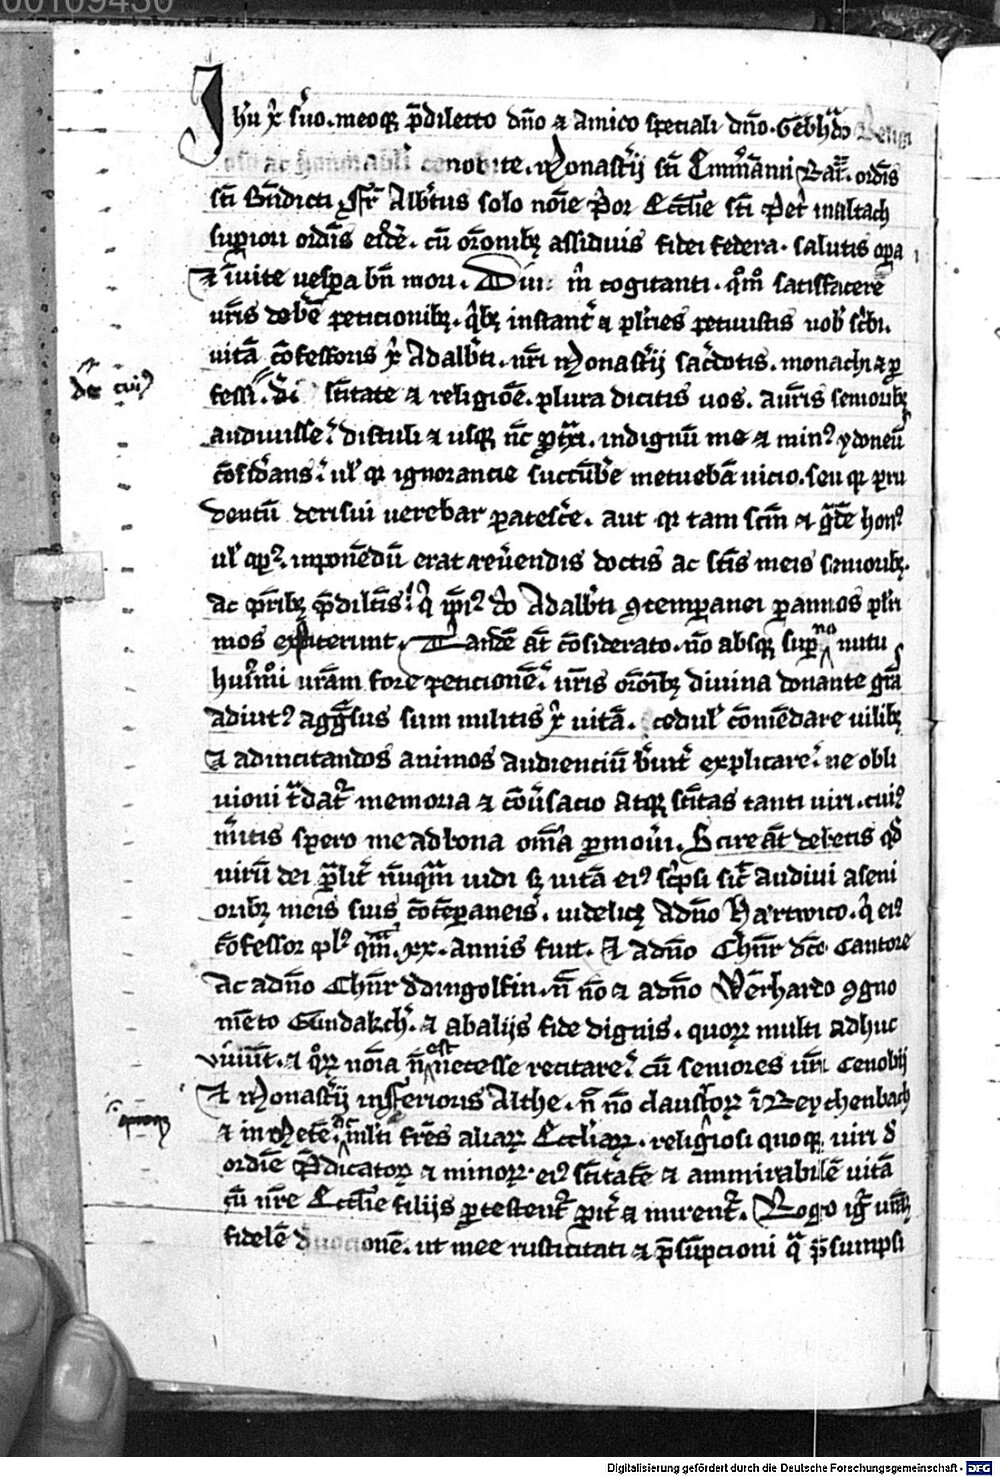 00109430
Jhu xp̄ s̄uo. meoq̢ p̄dilecto dn̄o ⁊ amico speciali dn̄o. Gebh̄do
nobite. Monast̄ij sc̄i Emm̄ammi Rat̄. ordīs
sc̄i Bn̄dicti fr̄ Alb̄tus solo nōie p̄or Eccl̄ie sc̄i Pet̄ inaltach
sup̲iori ordīs eidē. cū or̄onibȝ assiduis fidei federa. salutis op̲a
⁊ ī uite uesp̲a bn̄ mori. Diu m̄ cogitanti. qͦm̊ satisfacere
ur̄is debē peticionibȝ. q̄bȝ instant̄ ⁊ pl̄ries petiuistis uob̄ sc̄bi.
uitā cōfessoris xp̄ Adalb̄ti. nr̄i Monast̄ij sac̄dotis. monachi ⁊ p̲
de cuiꝰ
fessi. sc̄itate ⁊ religiōe. plura dicitis uos. a ur̄is seniorib̢
audiuisse. distuli ⁊ usq̢ nc̄ p̲t̄xi. indignū me ⁊ minꝰ ydoneū
cōsid̄ans. ul̄ q̢ ignorancie succūb̄e metuebā uicio. seu q̢ pru
dentū derisui uerebar patesc̄e. aut q̢ tam sc̄m ⁊ g̃de honꝰ
ul̄ opꝰ. inponēdū erat reūendis doctis ac sc̄is meis seniorib̢.
ac p̄rib̢ p̄dilc̄is. q̄ ip̄iꝰ d̄o Adalb̄ti ꝯtemp̲anei p̲ annos pl̄ri
mos extiterunt. Tandē āt cōsiderato. nō absq̢ sup̲no nutu
hui̊m̊i ur̄am fore peticionē. ur̄is or̄oībȝ diuina donante gr̄a
adiutꝰ agg̃ssus sum militis xp̄ uitā. cedul̄ cōmēdare uilibȝ
⁊ ad incitandos animos audienciū b̄uit̄ explicare. ne obli
uioni t̄dat̄ memoria ⁊ cōūsacio atq̢ sc̄itas tanti uiri. cuiꝰ
m̄itis spero me ad bona om̄ia p̲mou̅i. Scire āt debetis qd̄
uirū dei p̲lit̄ nūq̃m uidi sȝ uitā eiꝰ sc̄psi sic̄ audiui a seni
orib̢ meis suis cōtēp̲aneis. uidelicȝ a dn̄o Hartwico. q̄ eiꝰ
cōfessor plꝰ q̃m. xx. annis fuit. ⁊ a dn̄o Chūr dc̄o Cantore
ac a dn̄o Chūr d̄ dingolfin. n̄ nō ⁊ a dn̄o Wer̄hardo ꝯgno
mēto Gundakch̄. ⁊ ab alijs fide dignis. quoꝝ multi adhuc
ūiuūt. ⁊ q̊ꝝ nōia n̄ est necesse recitare. cū seniores ur̄i cenobij
⁊ Monast̄ij inferioris Althe. n̄ nō claustroꝝ ī Reychenbach
⁊ in Metē. ml̄ti fr̄es aliaꝝ Eccl̄iaꝝ. religiosi quoq̢ uiri d̄
ordīe p̄dicatoꝝ ⁊ minoꝝ. eiꝰ sc̄itatē ⁊ ammirabilē uitā
cū nr̄e Eccl̄ie filijs p̲testent̄ p̲it̄ ⁊ mirent̄. Rogo ig̊
fidelē ut mee rusticitati ⁊ p̄sūpcioni q̃ p̄sumpsi
Digitalisierung gefördert durch die Deutsche Forschungsgemeinschaft - DFG